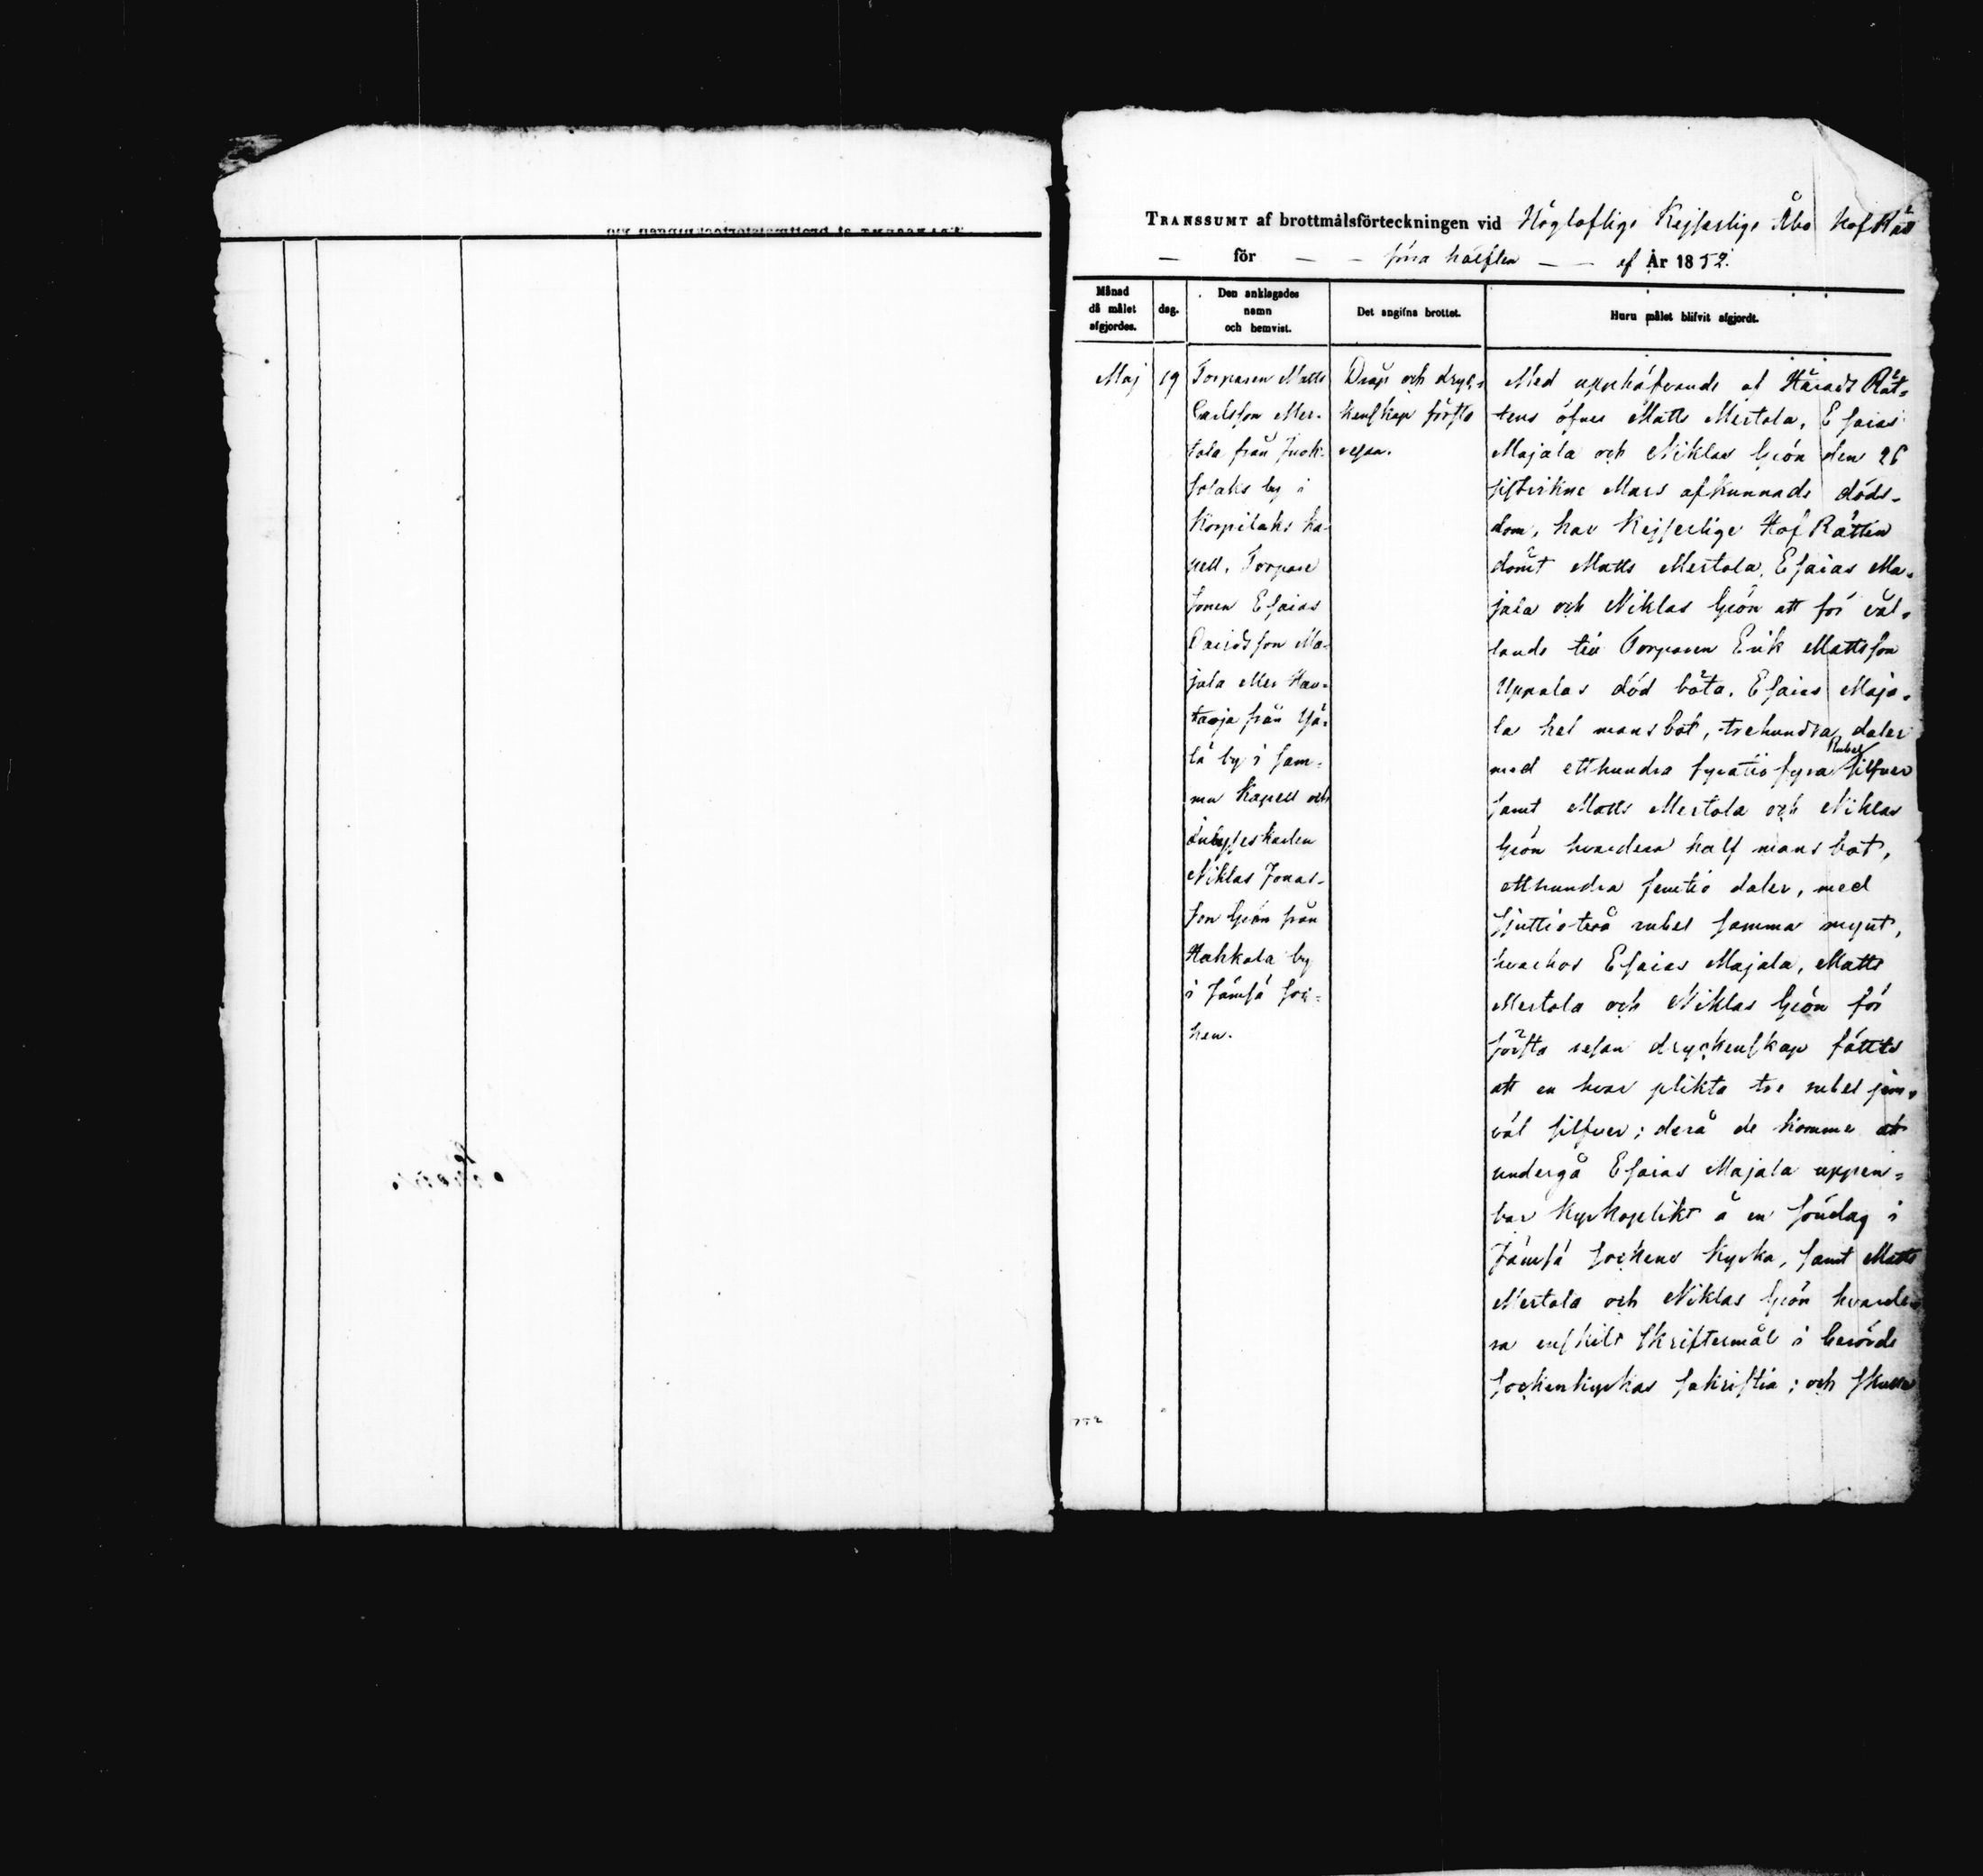 TRANSSUMT af brottmålsförteckningen vid Högloflige Kejserlige Åbo HofRätt
för förra hälften af År 1852.
Månad
då målet
afgjordes.
dag.
Den anklagades
namn
och hemvist.
Det angifna brottet.
Huru målet blifvit afgjordt.
Maj
19
Torparen Matts
Carlsson Mer-
tola från Juok-
solaks by i
Korpilaks ka-
pell, Torpare
sonen Esaias
Davidsson Ma-
jala eller Hau-
taoja från
by i sam-
ma Kapell och
Inhysteskarlen
Niklas Jonas-
son Grön från
Hahkala by
i Jämsä soc-
ken.
Dråp och dryc-
kenskap första
resan.
Med upphäfvande af Härads Rät-
tens öfver Matts Mertola, Esaias
Majala och Niklas Grön den 26
sistvikne Mars afkunnade döds-
dom, har Kejserlige HofRätten
dömt Matts Mertola, Esaias Ma-
jala och Niklas Grön att för vål-
lande till Torparen Erik Mattsson
Uppalas död böta, Esaias Maja-
la hel mansbot, trehundra daler
med etthundra fyratiofyra Rubel silfver
samt Matts Mertola och Niklas
Grön hvardera half mansbot,
etthundra femtio daler, med
sjuttiotvå rubel samma mynt,
hvarhos Esaias Majala, Matts
Mertola och Niklas Grön för
första resan dryckenskap fällts
att en hvar plikta tre rubel jem-
väl silfver; derå de komme att
undergå Esaias Majala uppen-
bar Kyrkoplikt å en söndag i
Jämsä sockens kyrka, samt Matts
Mertola och Niklas Grön hvarde-
ra enskilt skriftermål i berörde
sockenkyrkas sakristia; och skulle